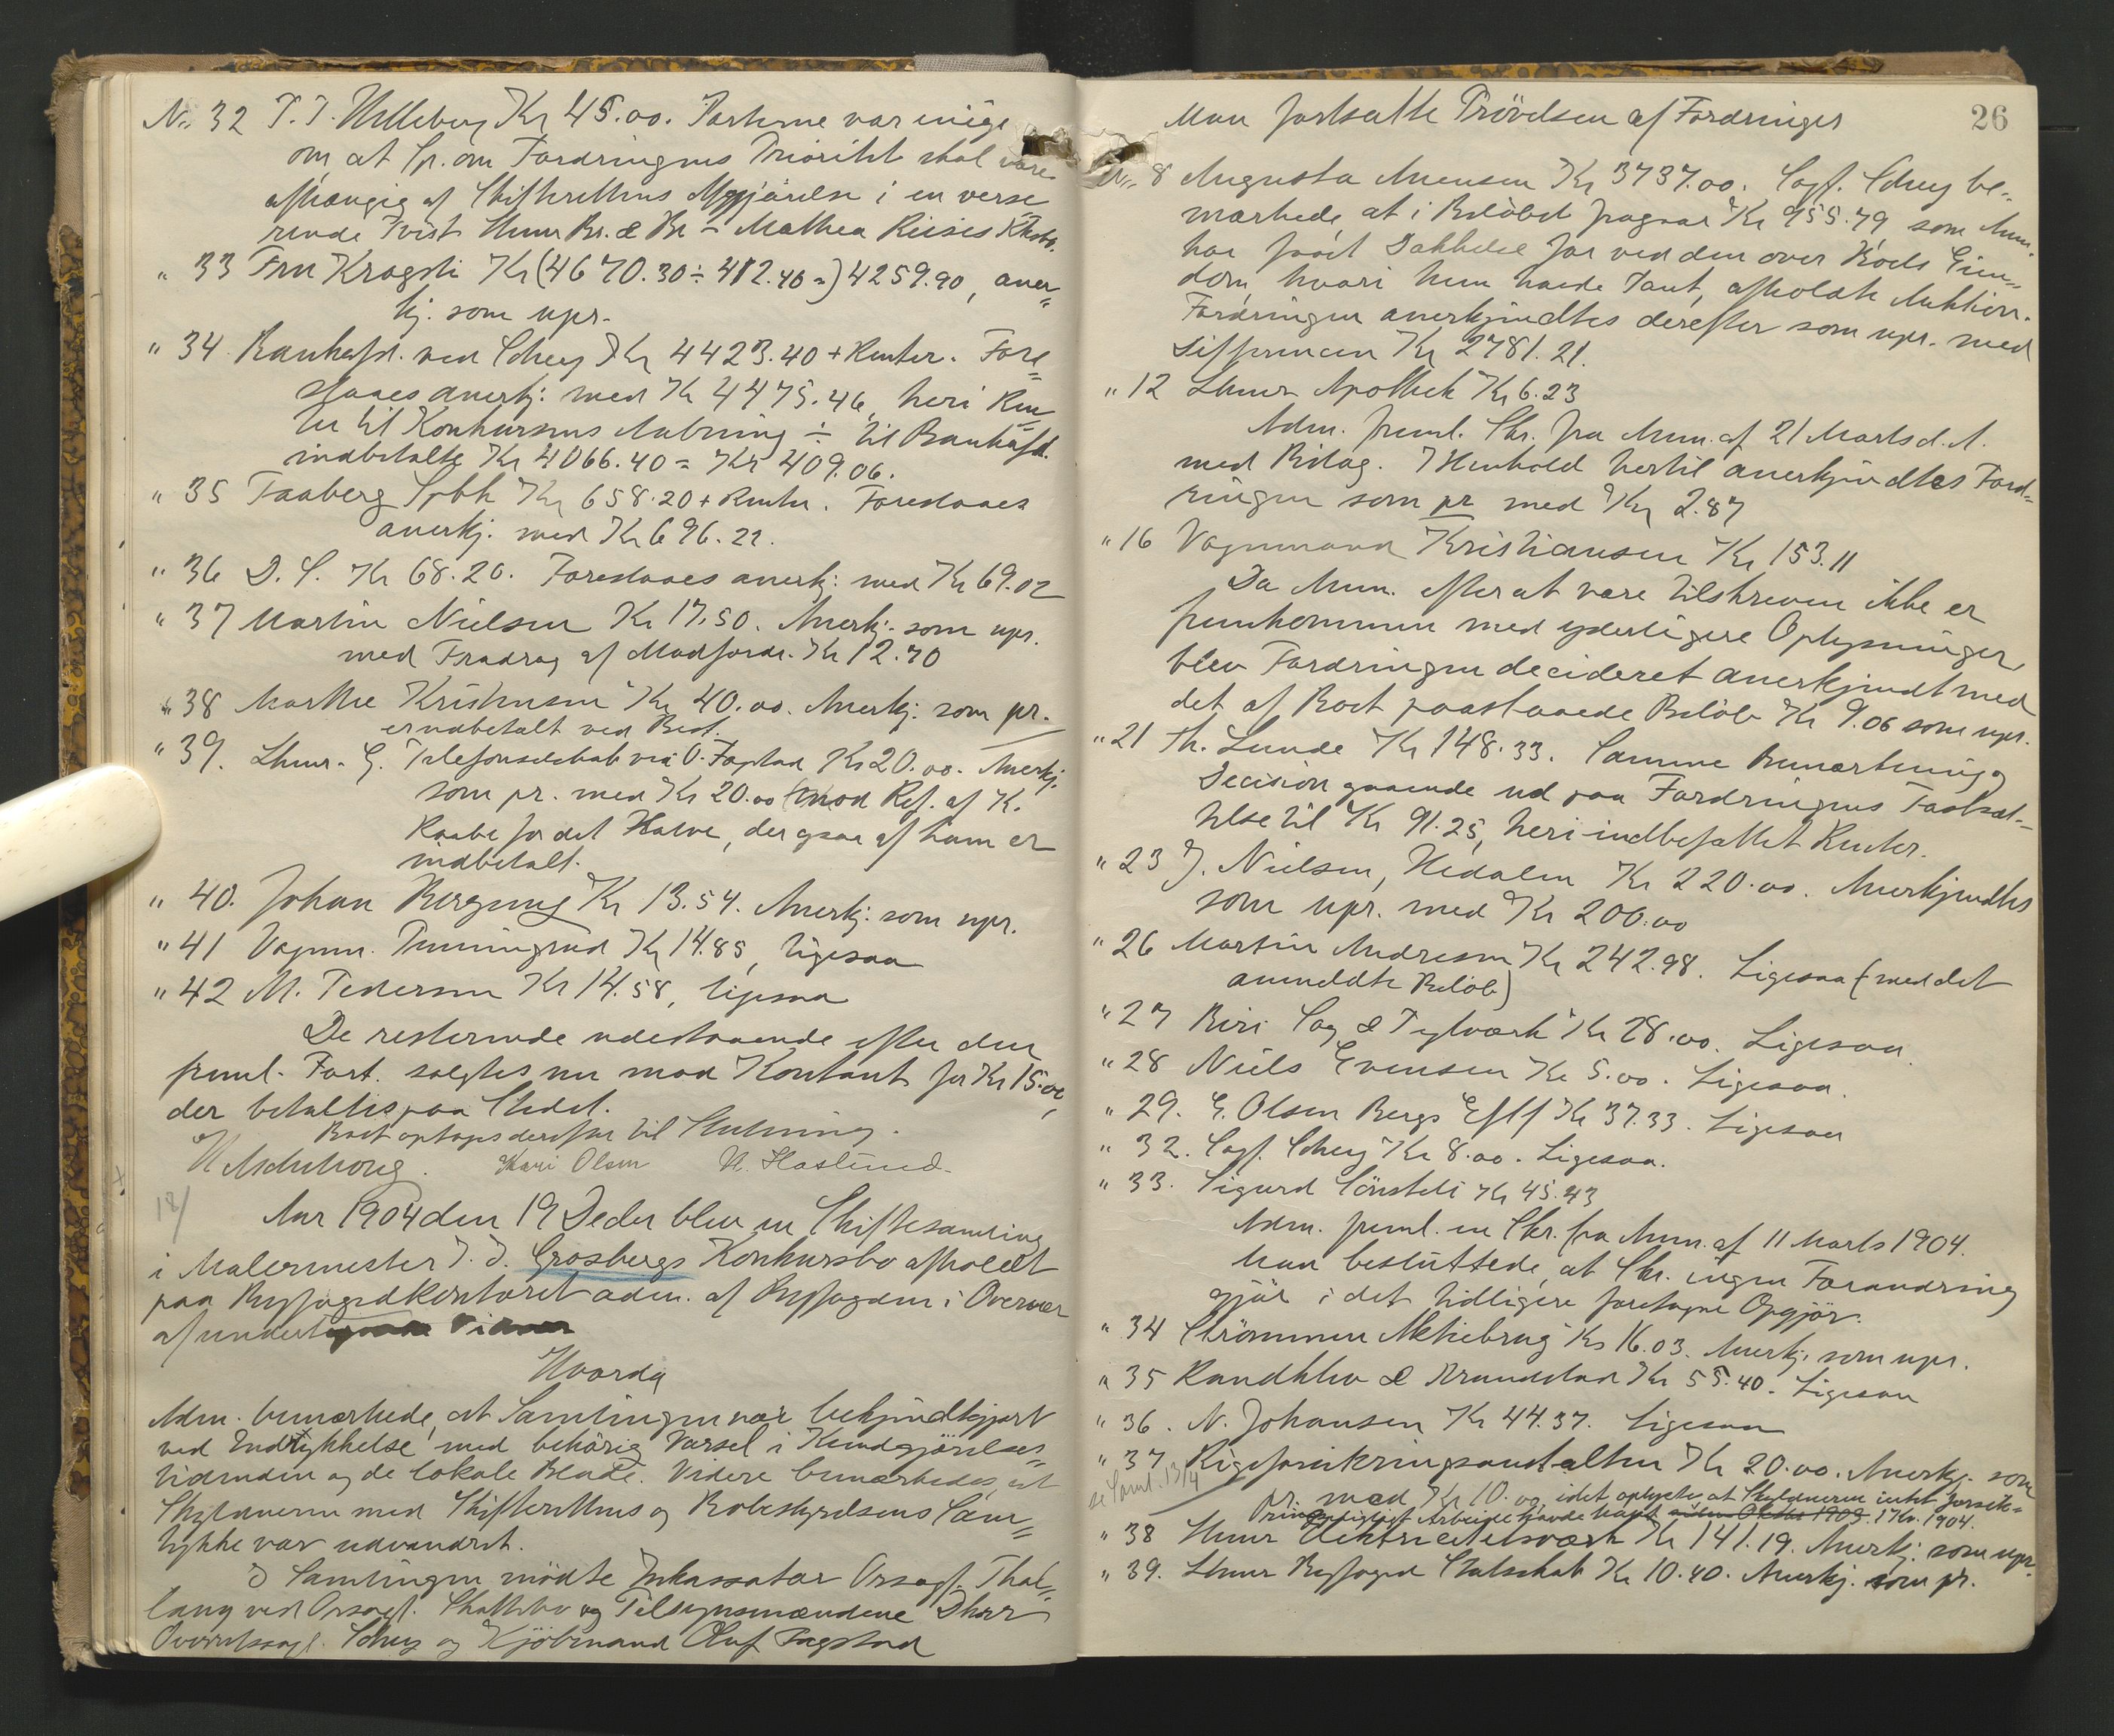 No. 32 T. T. Helleberg Kr 45.00. Parterne var enige
om, at Sp. om Fordringens Prioritet skal være
afhængig af Skifterettens Afgjörelse i en verse-
rende Tvist Hmr Br. & Br - Mathea Riises Kbo.
" 33 Fru Krogsti Kr (4670.30 ÷ 412.40 =) 4259.90, aner-
kj. som upr.
" 34 Bankafd. ved Schey Kr 4423.40 + Renter. Fore-
slaaes anerkj. med Kr 4475.46, heri Ren-
ter til Konkursens Aabning ÷ til Bankafd.
indbetalte Kr 4066.40 = Kr 409.06.
" 35 Faaberg Spbk Kr 658.20 + Renter. Foreslaaes
anerkj. med Kr 696.22.
" 36 D. S. Kr 68.20. Foreslaaes anerkj. med Kr 69.02
" 37 Martin Nielsen Kr 17.50. Anerkj. som upr.
med Fradrag af Modfordr. Kr 12.70
" 38 Marthe Kristensen Kr 40.00. Anerkj. som pr.
er udbetalt ved Best.
" 39. Lhmr. G. Telefonselskab ved O. Fagstad Kr 20.00. Anerkj.
som pr. med Kr 20.00 (mod Ref. af K.
Raabe for det Halve, der ogsaa af ham er
indbetalt.
" 40. Johan Bergseng Kr 13.54. Anerkj. som upr.
" 41 Vognm. Kr 14.85, ligesaa
" 42 M. Pedersen Kr 14.58, ligesaa
De resterende udestaaende efter den
freml. Fort. solgtes nu mod Kontant for Kr 15.00,
der betaltes paa Stedet.
Boet optoges derefter til Slutning.
Kari Olsen N. Haslund.
18/
Aar 1904 den 19 Dcbr blev en Skiftesamling
i Malermester J. J. Grosbergs Konkursbo afholdt
paa Byfogedkontoret adm. af Byfogden i Overvær
af
Hvorda
Adm. bemærkede, at Samlingen var bekjendtgjort
ved Indrykkelse med behörig Varsel i Kundgjörelses-
tidenden og de lokale Blade. Videre bemærkedes, at
Skyldneren med Skifterettens og Bobestyrelsens Sam-
tykke var udvandret.
I Samlingen mödte Inkassator Orsagf. Thal-
lang ved Orsagf. Skattebo og Tilsynsmændene Dhrr
Overretssagf. Schey og Kjöbmand Oluf Fagstad
26
Man fortsatte Prövelsen af Fordringer
No. 8 Augusta Monsen Kr 3737.00. Sagf. Schey be-
mærkede, at i Belöbet fragaar Kr 955.79 som Anm.
har faaet Dækkelse for ved den over Röds Eien-
dom, hvori hun havde Pant, afholdte Auktion.
Fordringen anerkjendtes derefter som upr. med
Differencen Kr 2781.21.
" 12 Lhmr Apothek Kr 6.23
Adm. freml. Skr. fra Anm. af 21 Marts d. A.
med Bilag. I Henhold hertil anerkjendtes Ford-
ringen som pr med Kr 2.87
" 16 Vognmand Kristiansen Kr 153.11
Da Anm. efter at være tilskreven ikke er
fremkommen med yderligere Oplysninger
blev Fordringen decideret anerkjendt med
det af Boet paastaaede Belöb Kr 9.06 som upr.
" 21 Th. Lunde Kr 148.33. Samme Bemærkning og
Decision gaaende ud paa Fordringens Fastsæt-
telse til Kr 91.25, heri indbefattet Renter.
" 23 J. Nielsen, Hedalen Kr 220.00. Anerkjendtes
som upr. med Kr 200.00
" 26 Martin Andresen Kr 242.98. Ligesaa (med det
anmeldte Belöb)
" 27 Biri Sag & Teglværk Kr 28.00. Ligesaa.
" 28 Niels Evensen Kr 5.00. Ligesaa.
" 29. E. Olsen Bergs Eftf Kr 37.33. Ligesaa
" 32. Sagf. Schey Kr 8.00. Ligesaa.
" 33. Sigurd Sönsteli Kr 45.43
Adm. freml. en Skr. fra Anm. af 11 Marts 1904.
Man besluttede, at Skr. ingen Forandring
gjör i det tidligere foretagne Opgjör.
" 34 Strömmen Aktiebrug Kr 16.03. Anerkj. som upr.
" 35 Randklev & Brundstad Kr 55.40. Ligesaa
" 36. N. Johansen Kr 44.37. Ligesaa
" 37 Rigsforsikringsanstalten Kr 20.00. Anerkj. som
se Saml. 13/4
pr. med Kr 10.00, idet oplystes at Skyldneren intet forsik-
ringspligtigt Arbeide havde havt siden Oktbr 1903. i Kv. 1904.
" 38 Hmr Elektricitetsværk Kr 141.19. Anerkj. som upr.
" 39. Lhmr Byfoged Skatskab Kr 10.40. Anerkj. som pr.